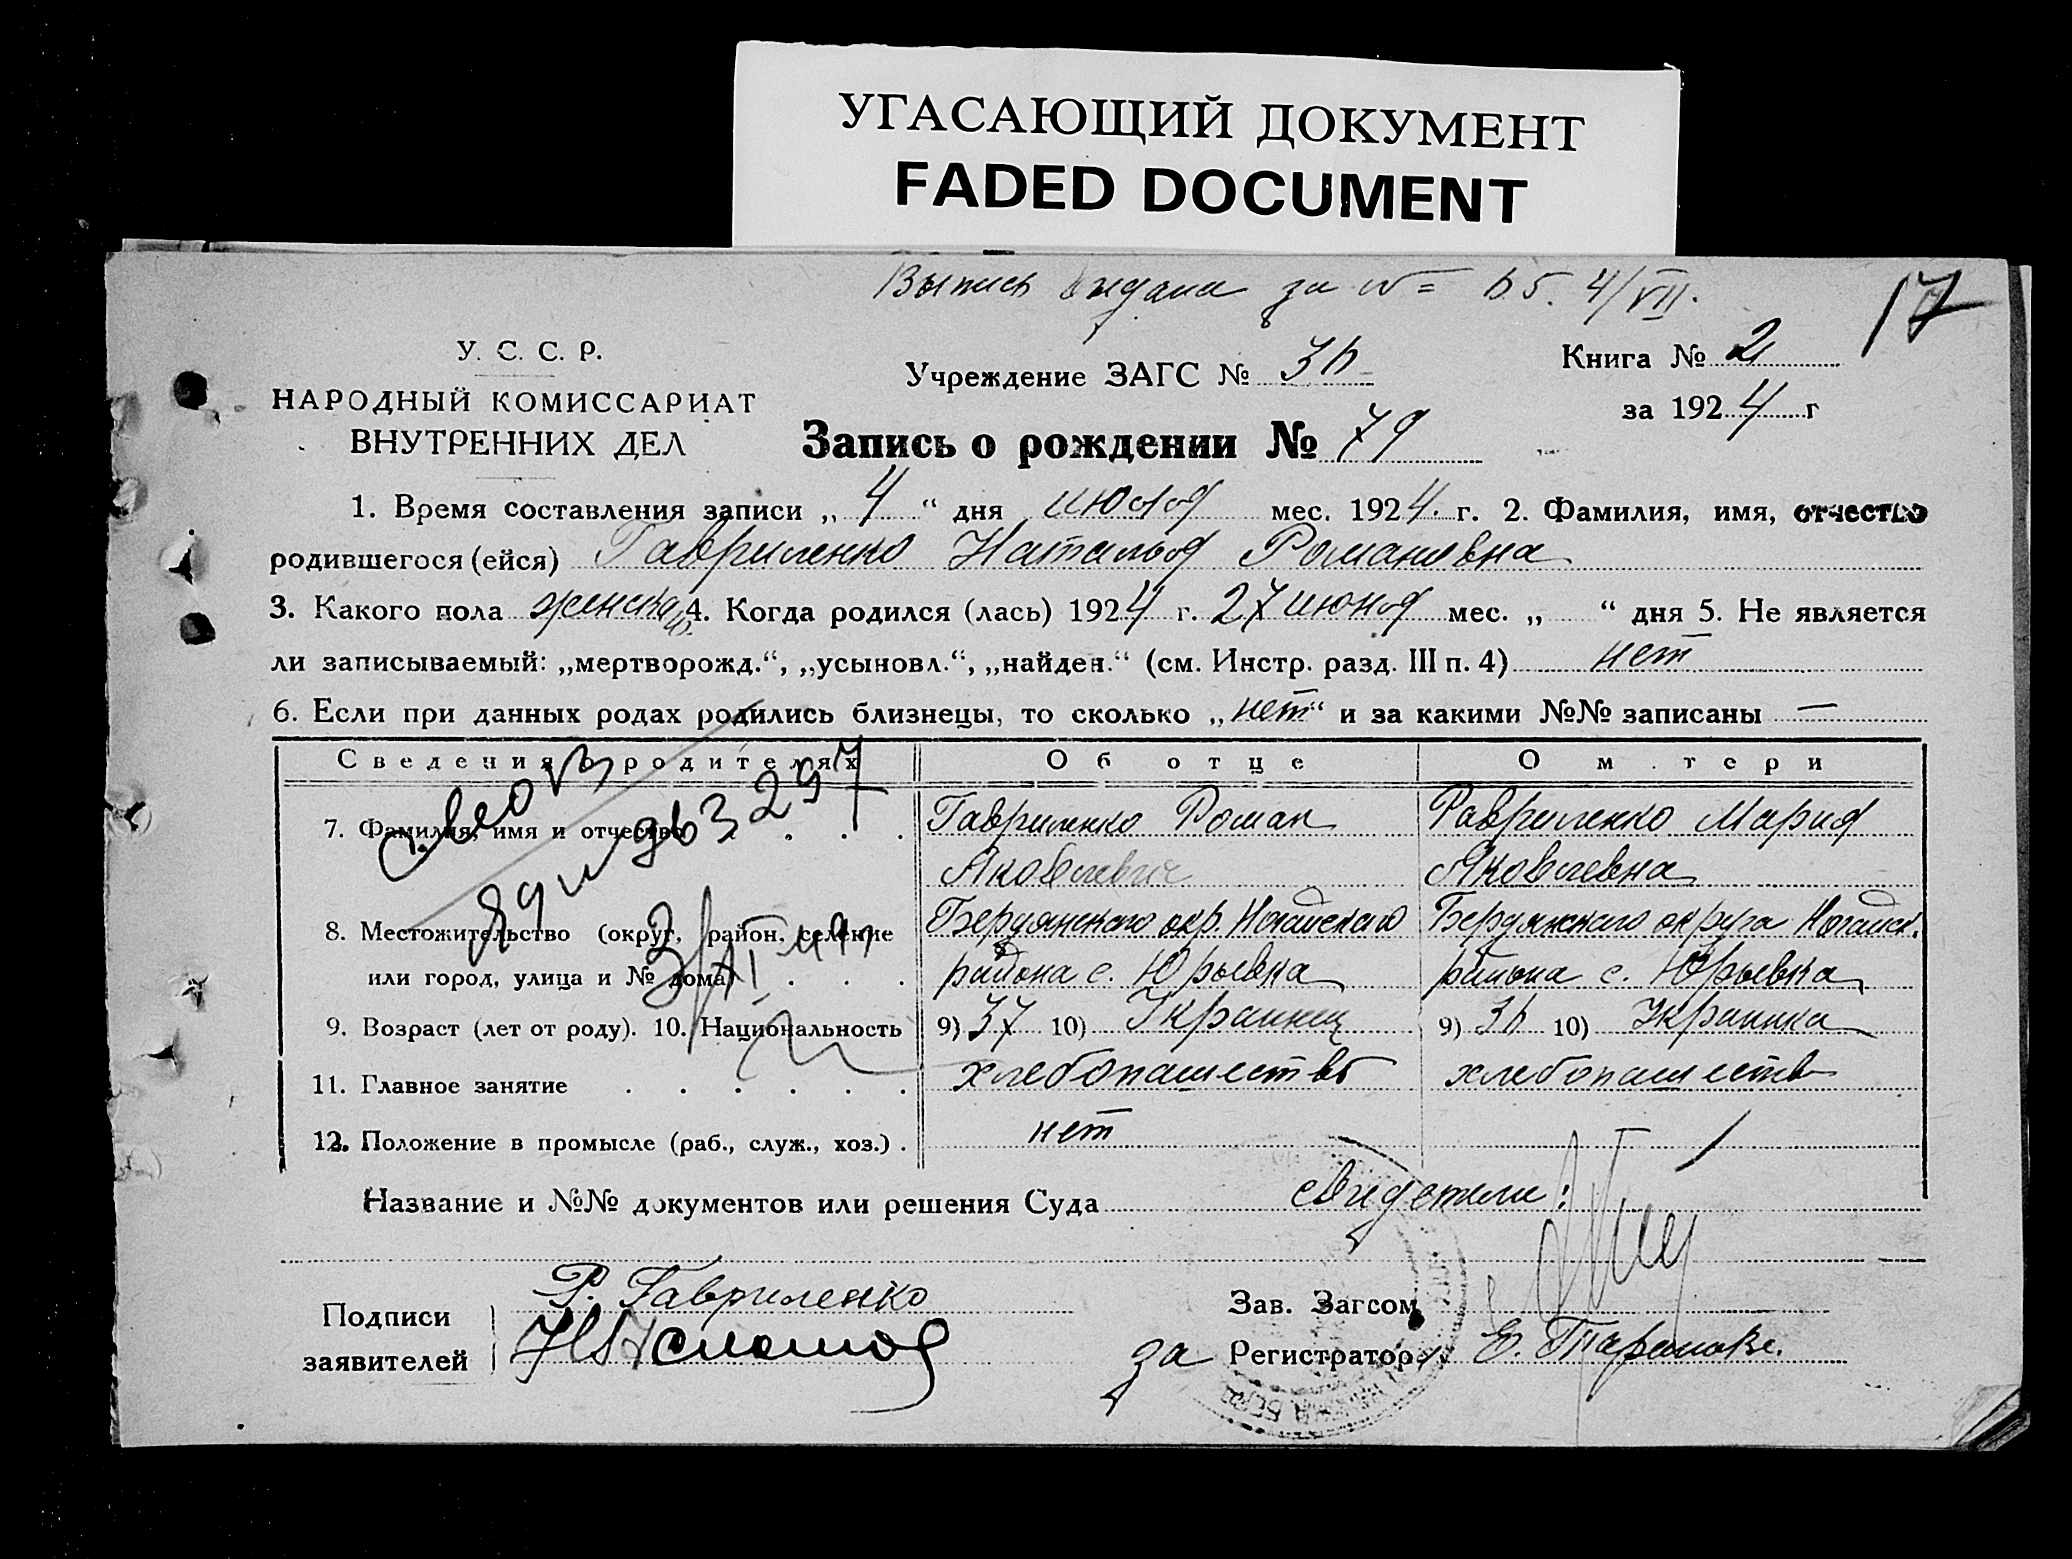 УГАСАЮЩИЙ ДОКУМЕНТ
FADED DOCUMENT
Выпись выдана за № = 65. 4/VII.
17
У. С. С. Р.
НАРОДНЫЙ КОМИССАРИАТ
ВНУТРЕННИХ ДЕЛ
Учреждение ЗАГС № 36
Книга № 2
за 1924 г
Запись о рождении № 79
1. Время составления записи „4“ дня июля мес. 1924. г. 2. Фамилия, имя, отчество
родившегося (ейся) Гавриленко Наталья Романовна
3. Какого пола женска 4. Когда родился (лась) 1924 г. 27 июня мес. „ “ дня 5. Не является
ли записываемый: „мертворожд.“, „усыновл.“, „найден.“ (см. Инстр. разд. III п. 4) нет
6. Если при данных родах родились близнецы, то сколько „нет“ и за какими №№ записаны —
Сведения о родителях Об отце О матери
7. Фамилия, имя и отчество Гавриленко Роман Гавриленко Мария
Яковлевич Яковлевна
8. Местожительство (округ, район, селение Бердянского окр. Ногайского Бердянского округа Ногайск.
или город, улица и № дома) района с. Юрьевка района с. Юрьевка
9. Возраст (лет от роду). 10. Национальность 9) 37 10) Украинец 9) 36 10) Украинка
11. Главное занятие хлебопашество хлебопашеств
12. Положение в промысле (раб., служ., хоз.) нет
Название и №№ документов или решения Суда свидетели:
Подписи
заявителей
Р. Гавриленко
Зав. Загсом
за Регистратор Е.